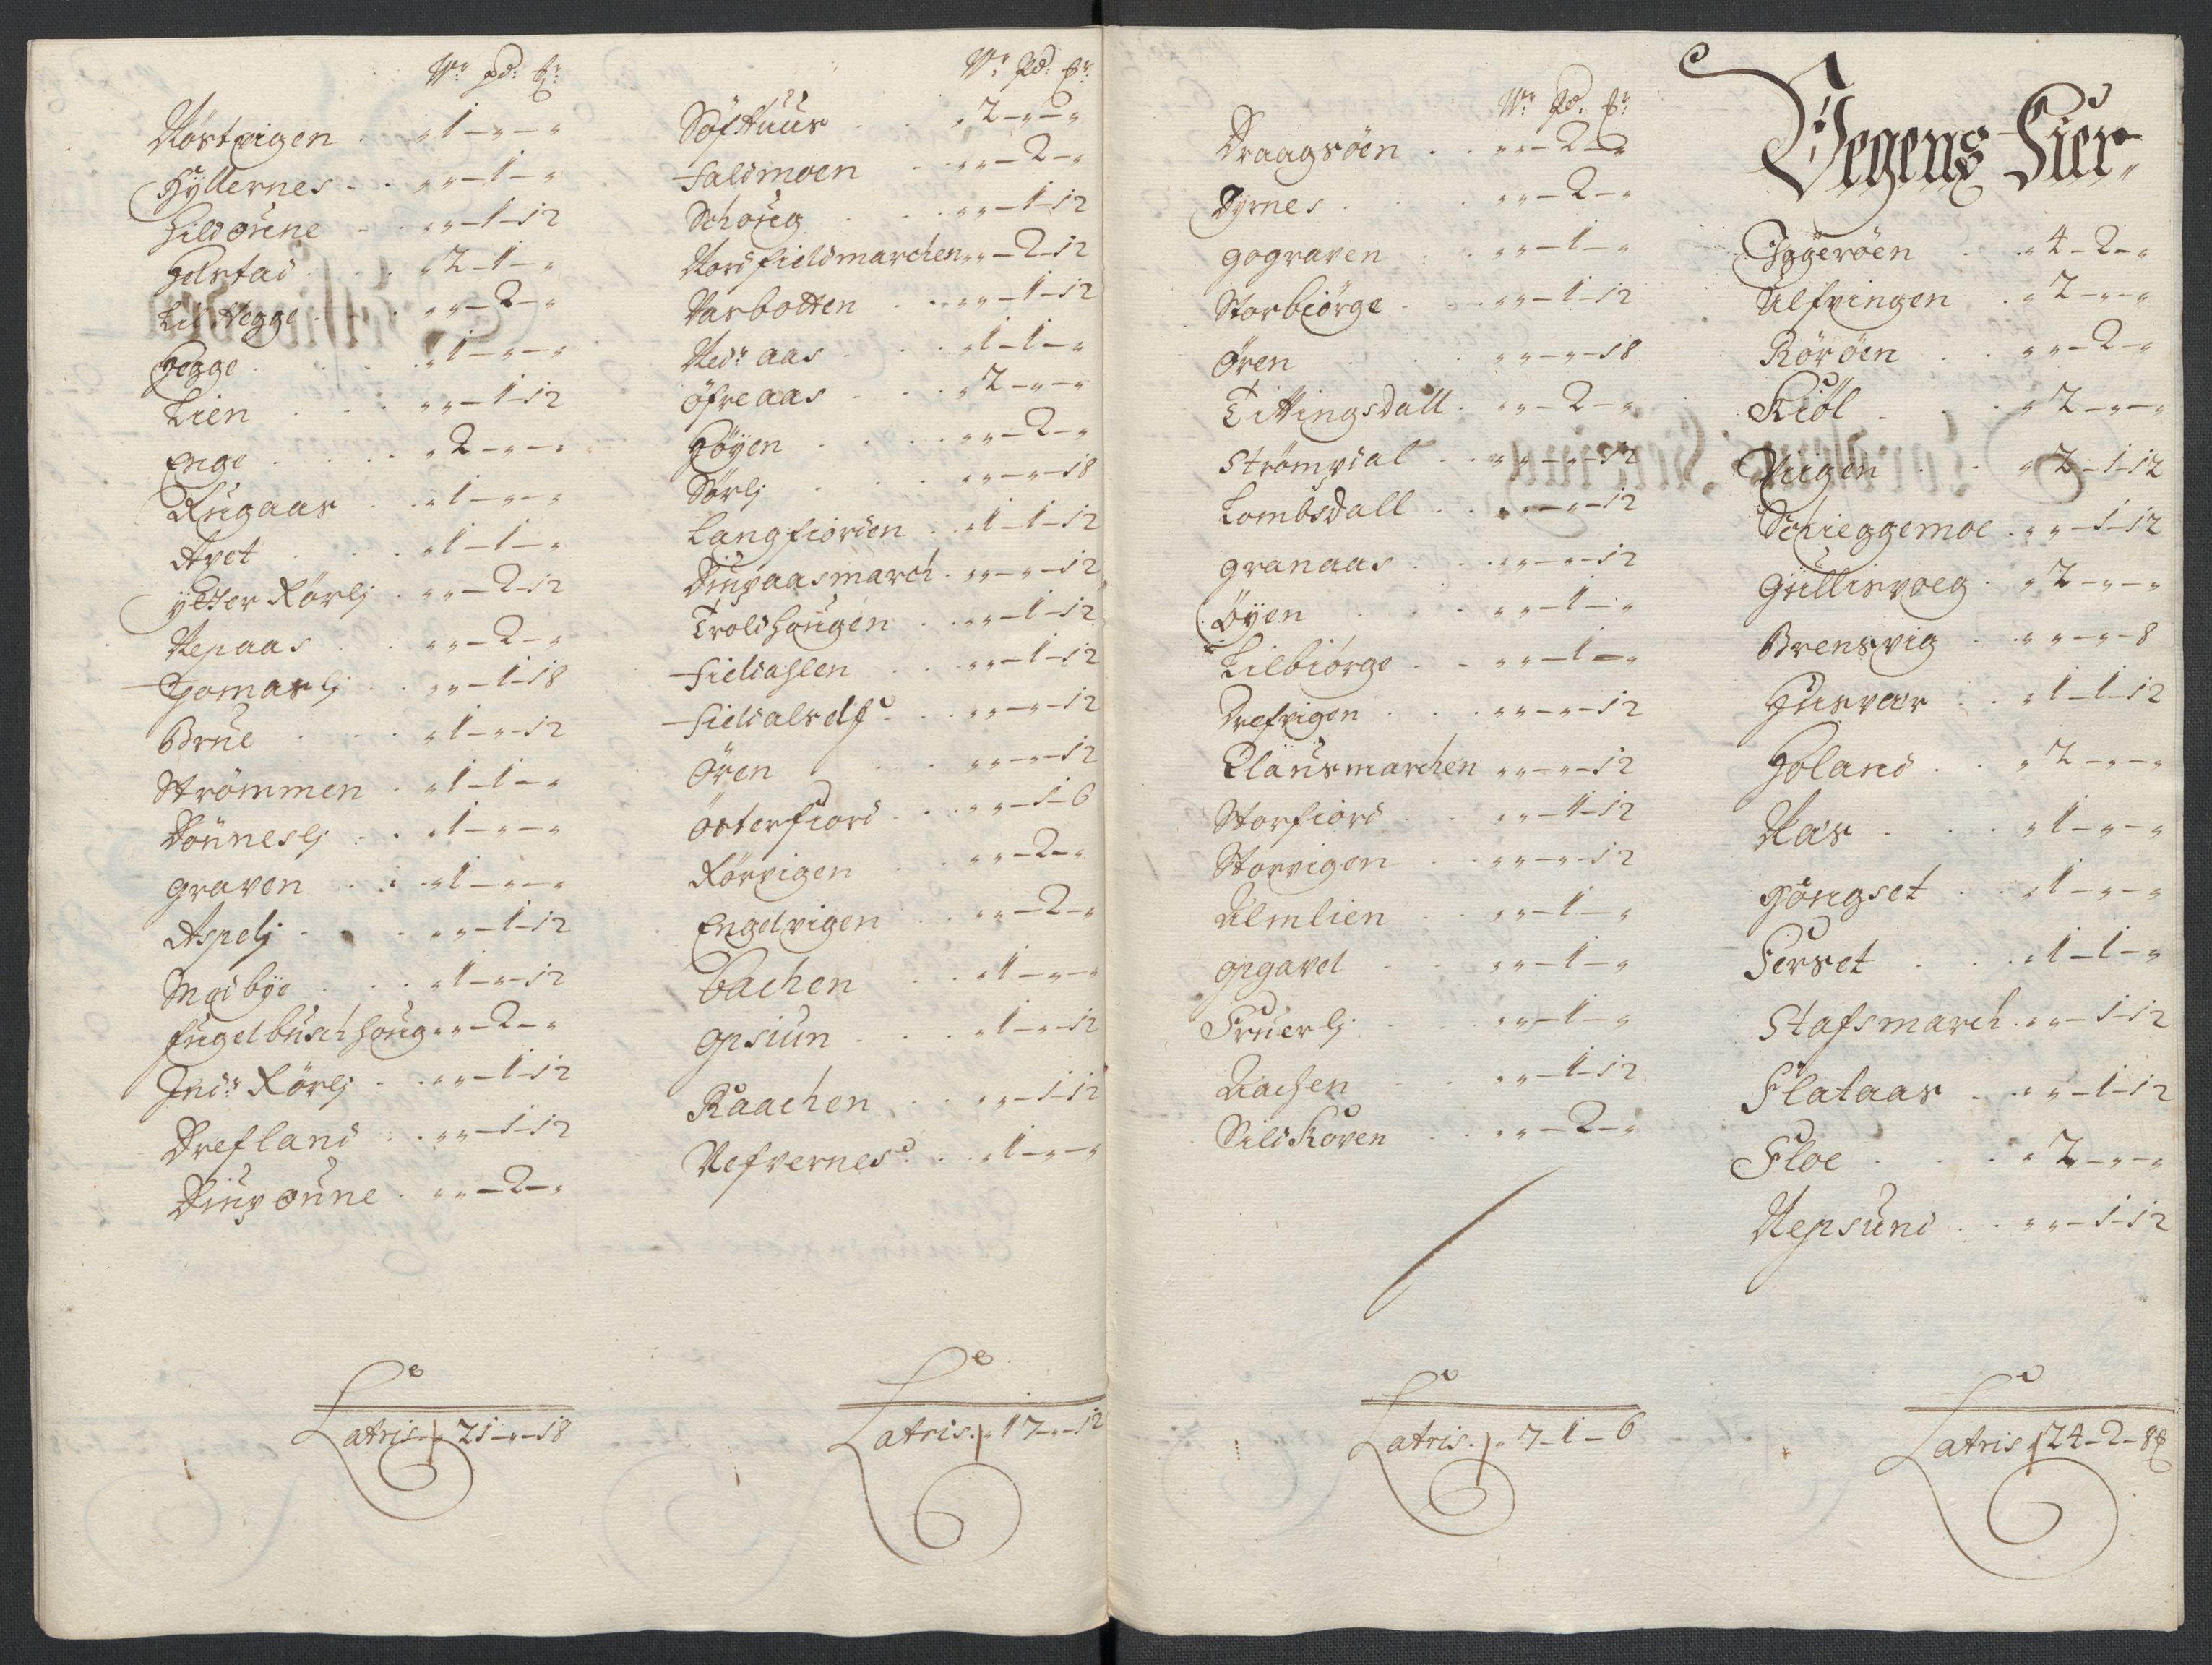 Wr pd: ℔r
Røstvigen . „ 1 – „ – „
Hÿllernes . . „ „ – 1 – „
Hildoune . . „ „ – 1 – 12
Holstad . . . „ 2 – 1 – „
Lis Hegge . . „ „ – 2 – „
Hegge . . . „ 1 – „ – „
Lien . . . „ „ – 1 – 12
Enge . . . „ 2 – „ – „
Rugaas . . „ 1 – „ – „
Avet . . . „ 1 – 1 – „
ÿtter Rørlj . „ „ – 2 – 12
Repaas . . „ „ – 2 – „
Gomarlj . . „ „ – 1 – 18
Brue . . . „ 1 – „ – 12
Strømmen . „ 1 – 1 – „
Dønneslj . . „ 1 – „ – „
graven . . „ 1 – „ – „
Aspelj . . „ „ – 1 – 12
Medbÿe . . . „ 1 – „ – 12
fugelbusch houg „ „ – 2 – „
Indr Rørlj . . „ „ – 1 – 12
Drefland . . „ „ – 1 – 12
Diupoune . „ „ – 2 – „
Latris . „ 21 – „ – 18
Wr pd: ℔r
Søfthuus . . „ 2 – „ – „
Faldmoen . „ „ – 2 – „
Schoug . . . „ „ – 1 – 12
Nordfieldmarchen „ „ – 2 – 12
Narbotten . . „ „ – 1 – 12
Nedr aas . . . „ 1 – 1 – „
øfre aas . . . „ 2 – „ – „
Høÿen . . . „ „ – 2 – „
Sørlj . . . „ „ – „ – 18
Langfiorden . . „ 1 – 1 – 12
Diupaasmarch . „ „ – „ – 12
Troldhougen . . „ „ – 1 – 12
Fieldahlen . . „ „ – 1 – 12
Fieldalself . . „ „ – „ – 12
Øren . . „ „ – „ – 12
Østerfiord . . „ „ – 1 – 6
Rørvigen . . „ „ – 2 – „
Engelvigen . . „ „ – 2 – „
bachen . . „ 1 – „ – „
Opsiun . . . „ 1 – „ – 12
Raachen . . „ „ – 1 – 12
Nefvernes . . „ 1 – „ – „
Latris . „ 17 – „ – 12
Wr pd: ℔r
Draagsøen . . „ „ – 2 – „
Dÿrnes . . . „ „ – 2 – „
gograven . . „ „ – 1 – „
Storbiørge . . „ „ – 1 – 12
Øren . . . „ „ – „ – 18
Tittingsdall . „ „ – 2 – „
Strømdal . . „ „ – „ – 12
Lombsdall . . „ „ – „ – 12
granaas . . „ „ – „ – 12
Øÿen . . „ „ – 1 – „
Lilbiørge . . „ „ – 1 – „
Drefvigen . . . „ „ – „ – 12
Clausmarchen „ „ – „ – 12
Storfiord . . „ „ – 1 – 12
Storvigen . . „ „ – „ – 12
Almlien . . „ „ – 1 – „
opgavel . . „ „ – 1 – „
Fruerlj . . „ „ – 1 – „
Aachen . . „ „ – 1 – 12
Sildhoven . . „ „ – 2 – „
Latris . „ 7 – 1 – 6
Vegens Fier„
Iggerøen . . „ 4 – 2 – „
Ulfvingen . „ 2 – „ – „
Rørøen . . „ „ – 2 – „
Kiøl . . . „ 2 – „ – „
Viigen . . „ 2 – 1 – 12
Schieggemoe . „ „ – 1 – 12
Gullisvoeg . „ 2 – „ – „
Brensvig . „ „ – „ – 8
Husvær . . „ 1 – 1 – 12
Holand . . „ 2 – „ – „
Aas . . . „ 1 – „ – „
Hongset . . „ 1 – „ – „
Ferset . . „ 1 – 1 – „
Stafsmarch . „ „ – 1 – 12
Flataas . . „ „ – 1 – 12
Floe . . . „ 2 – „ – „
Repsund . . „ „ – 1 – 12
Latris „ 24 – 2 – 8